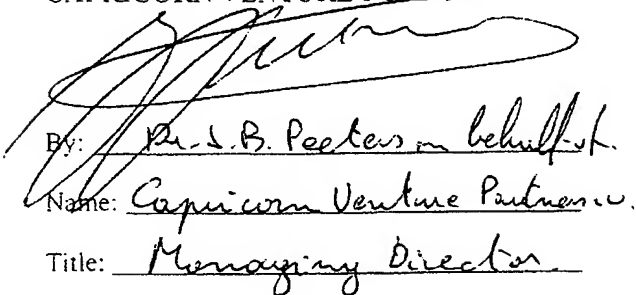 CAPRICORN VENTURE
By: Dr. J. B. Peeters on behalf of.
Name: Capricorn Venture Partners n.v.
Title: Managing Director.